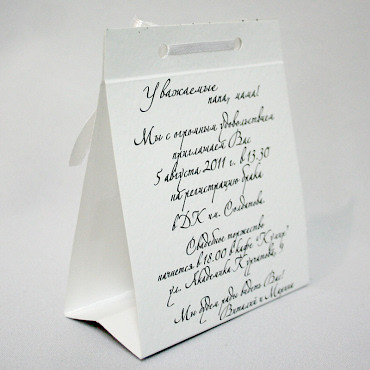 Уважаемые
папа, мама!
Мы с огромным удовольствием
приглашаем Вас
5 августа 2011 г. в 13.30
на регистрацию брака
в ДК им. Солдатова.
Свадебное торжество
начнется в 18.00 в кафе "Кулер"
ул. Академика Курчатова, 9
Мы будем рады видеть Вас!
Виталий и Марина